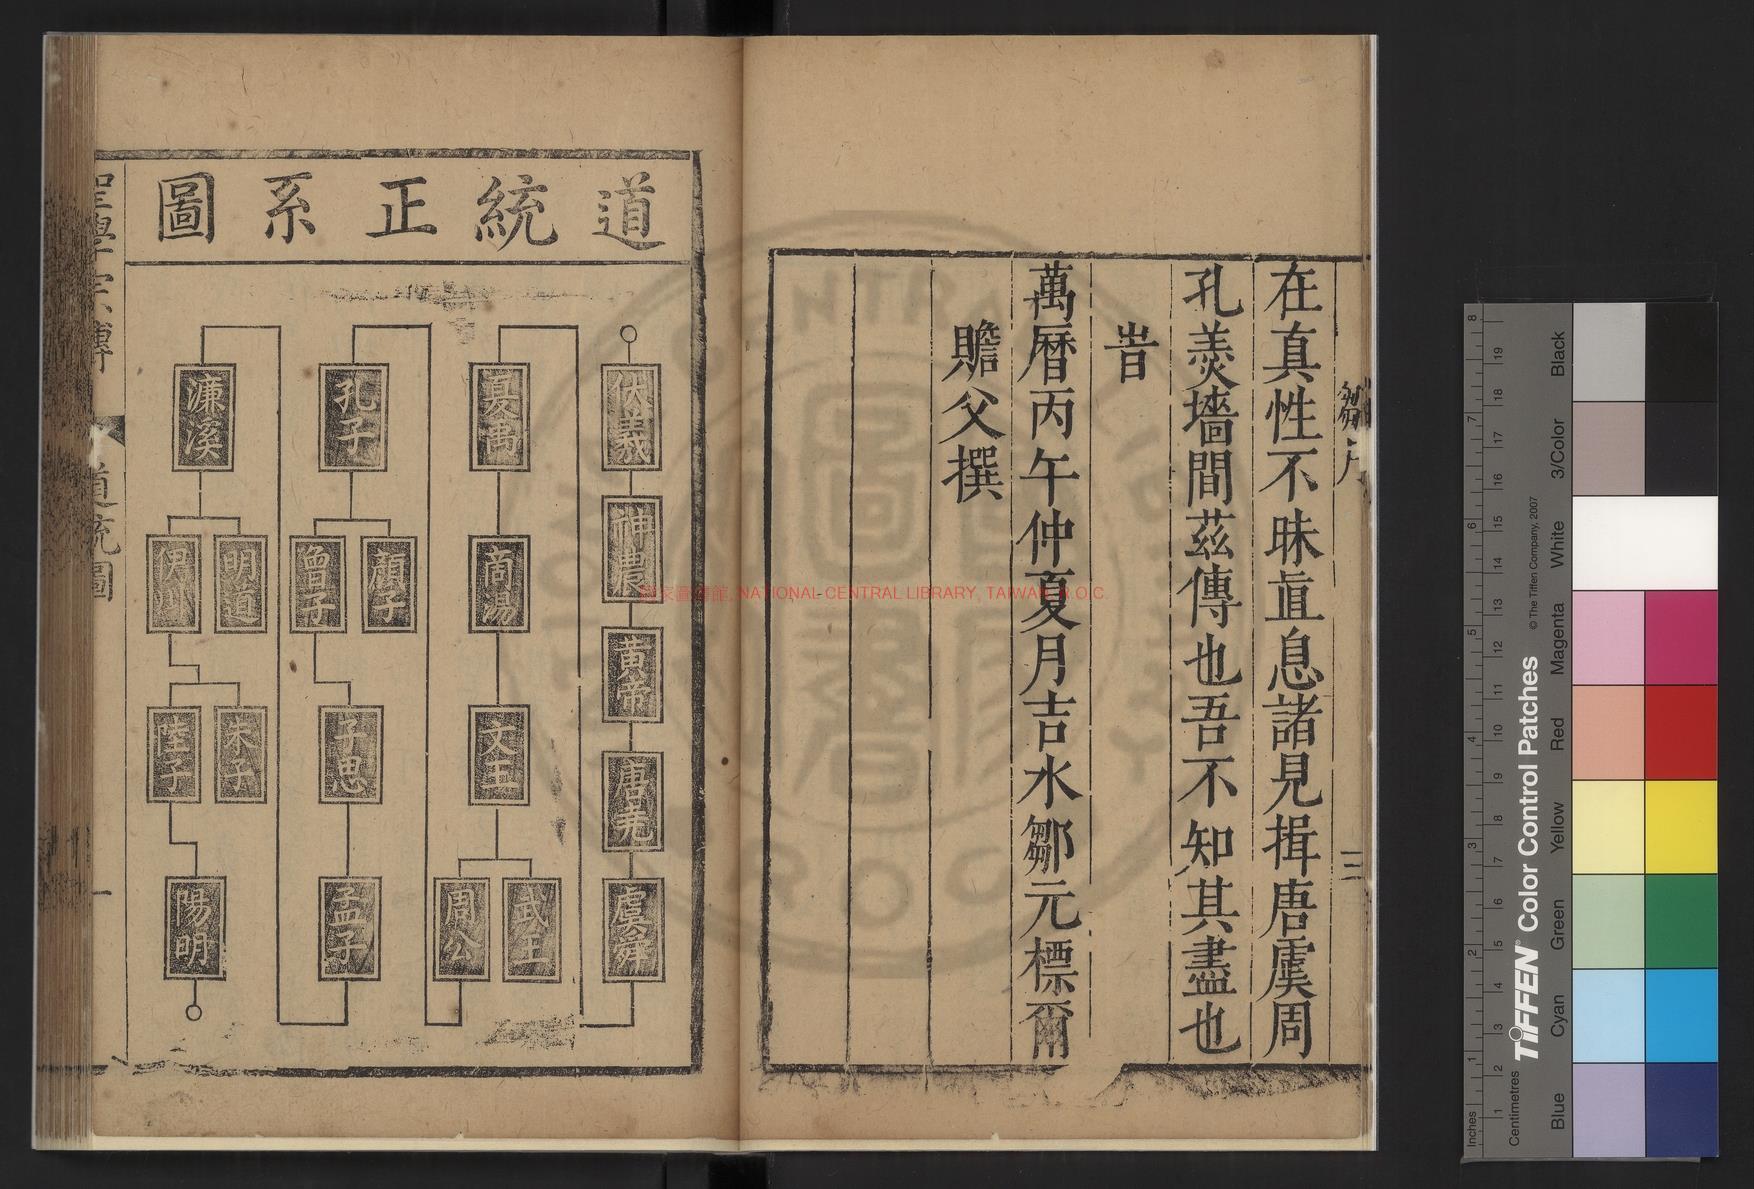 在真性不昧直息諸見揖唐虞周
孔羹墻間茲傳也吾不知其盡也
旹
萬曆丙午仲夏月吉水鄒元標爾
瞻父撰
鄒序
三
道統正系圖
伏羲
神農
黃帝
唐堯
虞舜
夏禹
商湯
文王
武王
周公
孔子
顏子
曾子
子思
孟子
濂溪
明道
伊川
朱子
陸子
陽明
聖學宗傳
道統圖
一
國家圖書館, NATIONAL CENTRAL LIBRARY, TAIWAN, R.O.C.
TIFFEN® Color Control Patches
© The Tiffen Company, 2007
Inches
Centimetres
Blue
Cyan
Green
Yellow
Red
Magenta
White
3/Color
Black